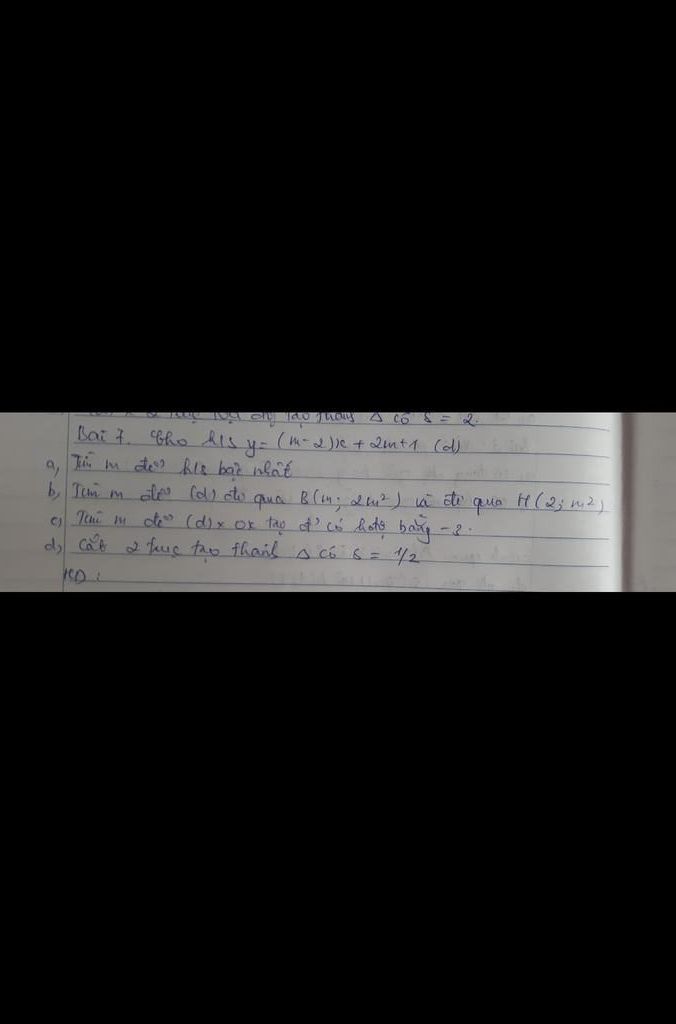 2 trục toạ độ tạo thành Δ có S = 2.
Bài 7. Cho h/s y = (m-2)x + 2m+1 (d)
a, Tìm m để h/s bậc nhất
b, Tìm m để (d) đi qua B(m; 2m²) và đi qua H(2; m²)
c, Tìm m để (d) x ox tạo đ' có hđộ bằng -3.
d, Cắt 2 trục tạo thành Δ có S = 1/2
: